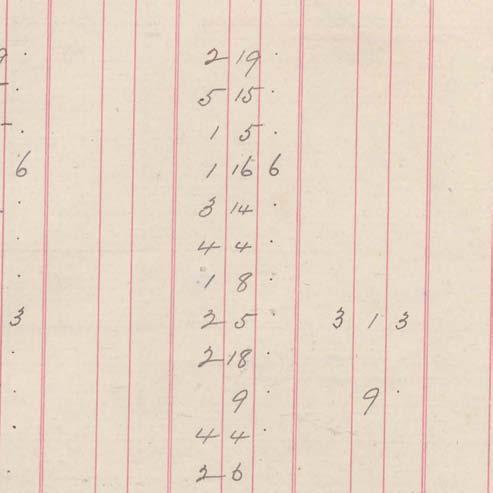 9 · 2 19 ·
5 15 ·
1 5 ·
6 1 16 6
· 3 14 ·
· 4 4 ·
· 1 8 ·
3 2 5 · 3 1 3
· 2 18 ·
· 9 · 9 ·
· 4 4 ·
· 2 6